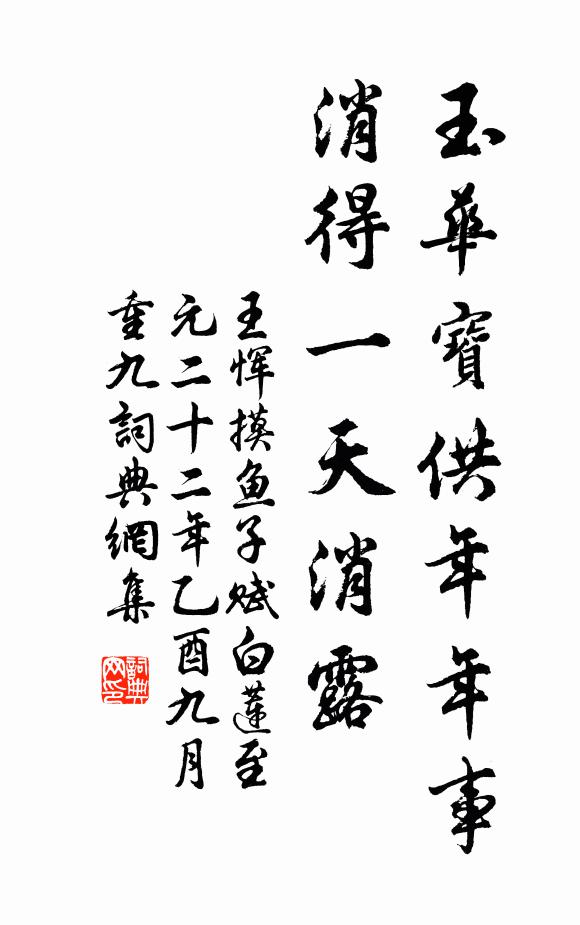 玉華寶供年年事
消得一天消露
王恽摸鱼子赋白蓮至
元二十二年乙酉九月
重九詞典網集
詞典
网印